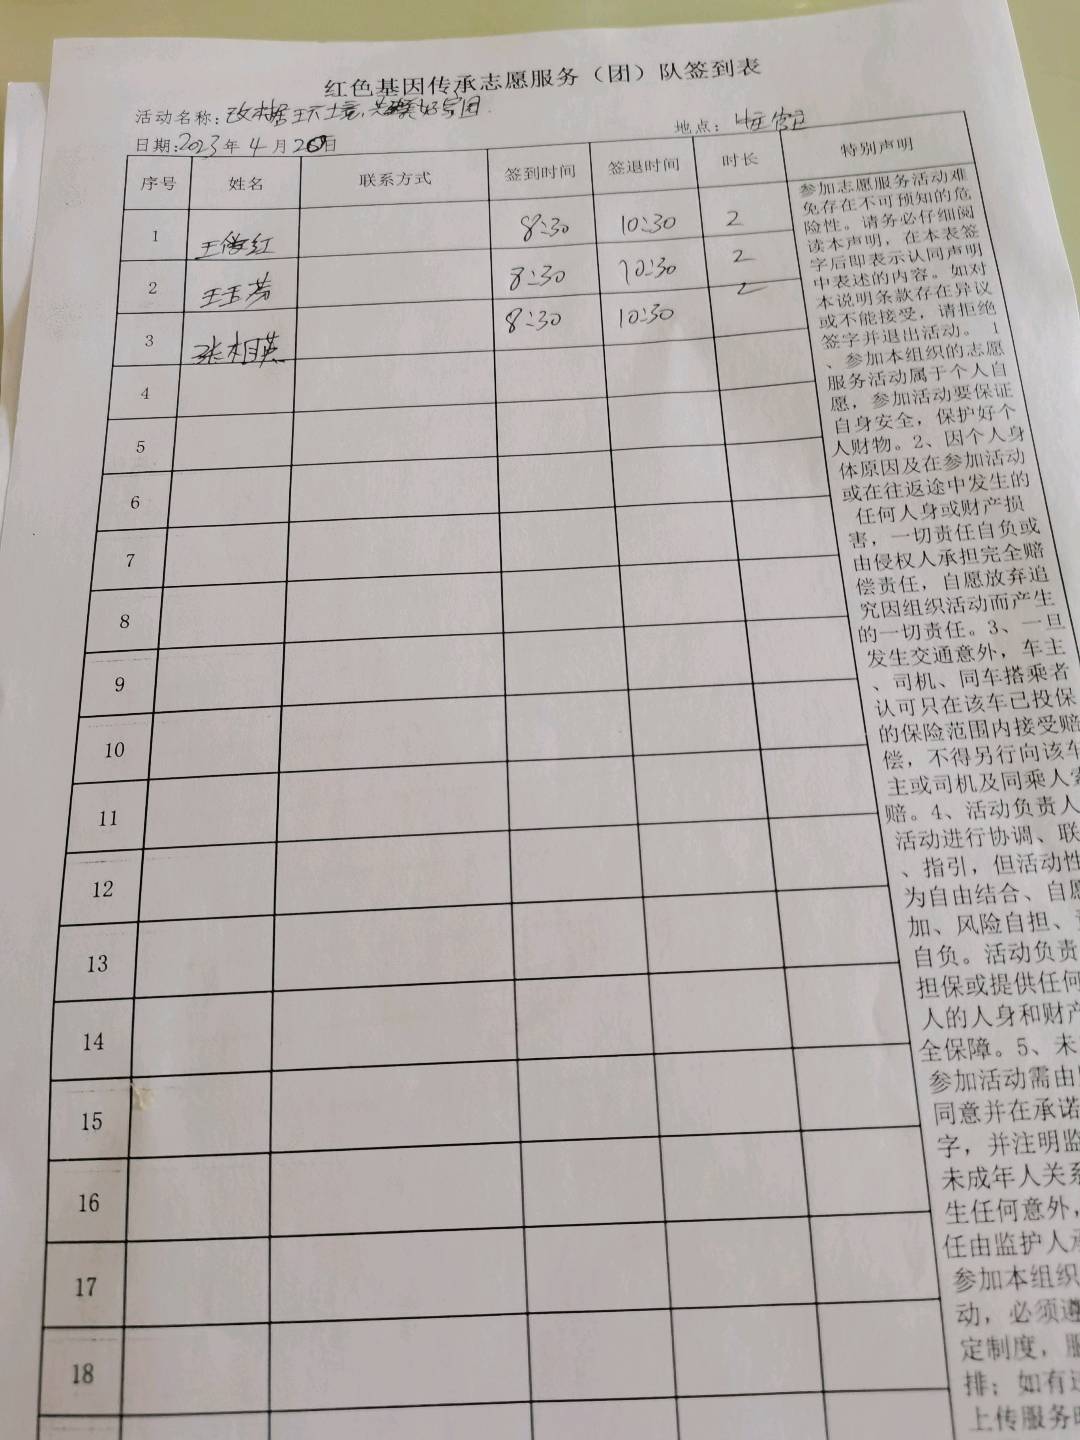 红色基因传承志愿服务（团）队签到表
活动名称:改 环境,共 好家园
地点:
日期:2023年4月20日
序号 姓名 联系方式 签到时间 签退时间 时长 特别声明
1 王俊红 8:30 10:30 2
2 王玉芳 8:30 10:30 2
3 张相英 8:30 10:30 2
4
5
6
7
8
9
10
11
12
13
14
15
16
17
18
参加志愿服务活动难
免存在不可预知的危
险性。请务必仔细阅
读本声明，在本表签
字后即表示认同声明
中表述的内容。如对
本说明条款存在异议
或不能接受，请拒绝
签字并退出活动。1
、参加本组织的志愿
服务活动属于个人自
愿，参加活动要保证
自身安全，保护好个
人财物。2、因个人身
体原因及在参加活动
或在往返途中发生的
任何人身或财产损
害，一切责任自负或
由侵权人承担完全赔
偿责任，自愿放弃追
究因组织活动而产生
的一切责任。3、一旦
发生交通意外，车主
、司机、同车搭乘者
认可只在该车已投保
的保险范围内接受赔
偿，不得另行向该车
主或司机及同乘人索
赔。4、活动负责人
活动进行协调、联
、指引，但活动性
为自由结合、自愿
加、风险自担、
自负。活动负责
担保或提供任何
人的人身和财产
全保障。5、未
参加活动需由
同意并在承诺
字，并注明监
未成年人关系
生任何意外，
任由监护人承
参加本组织
动，必须遵
定制度，服
排；如有违
上传服务时